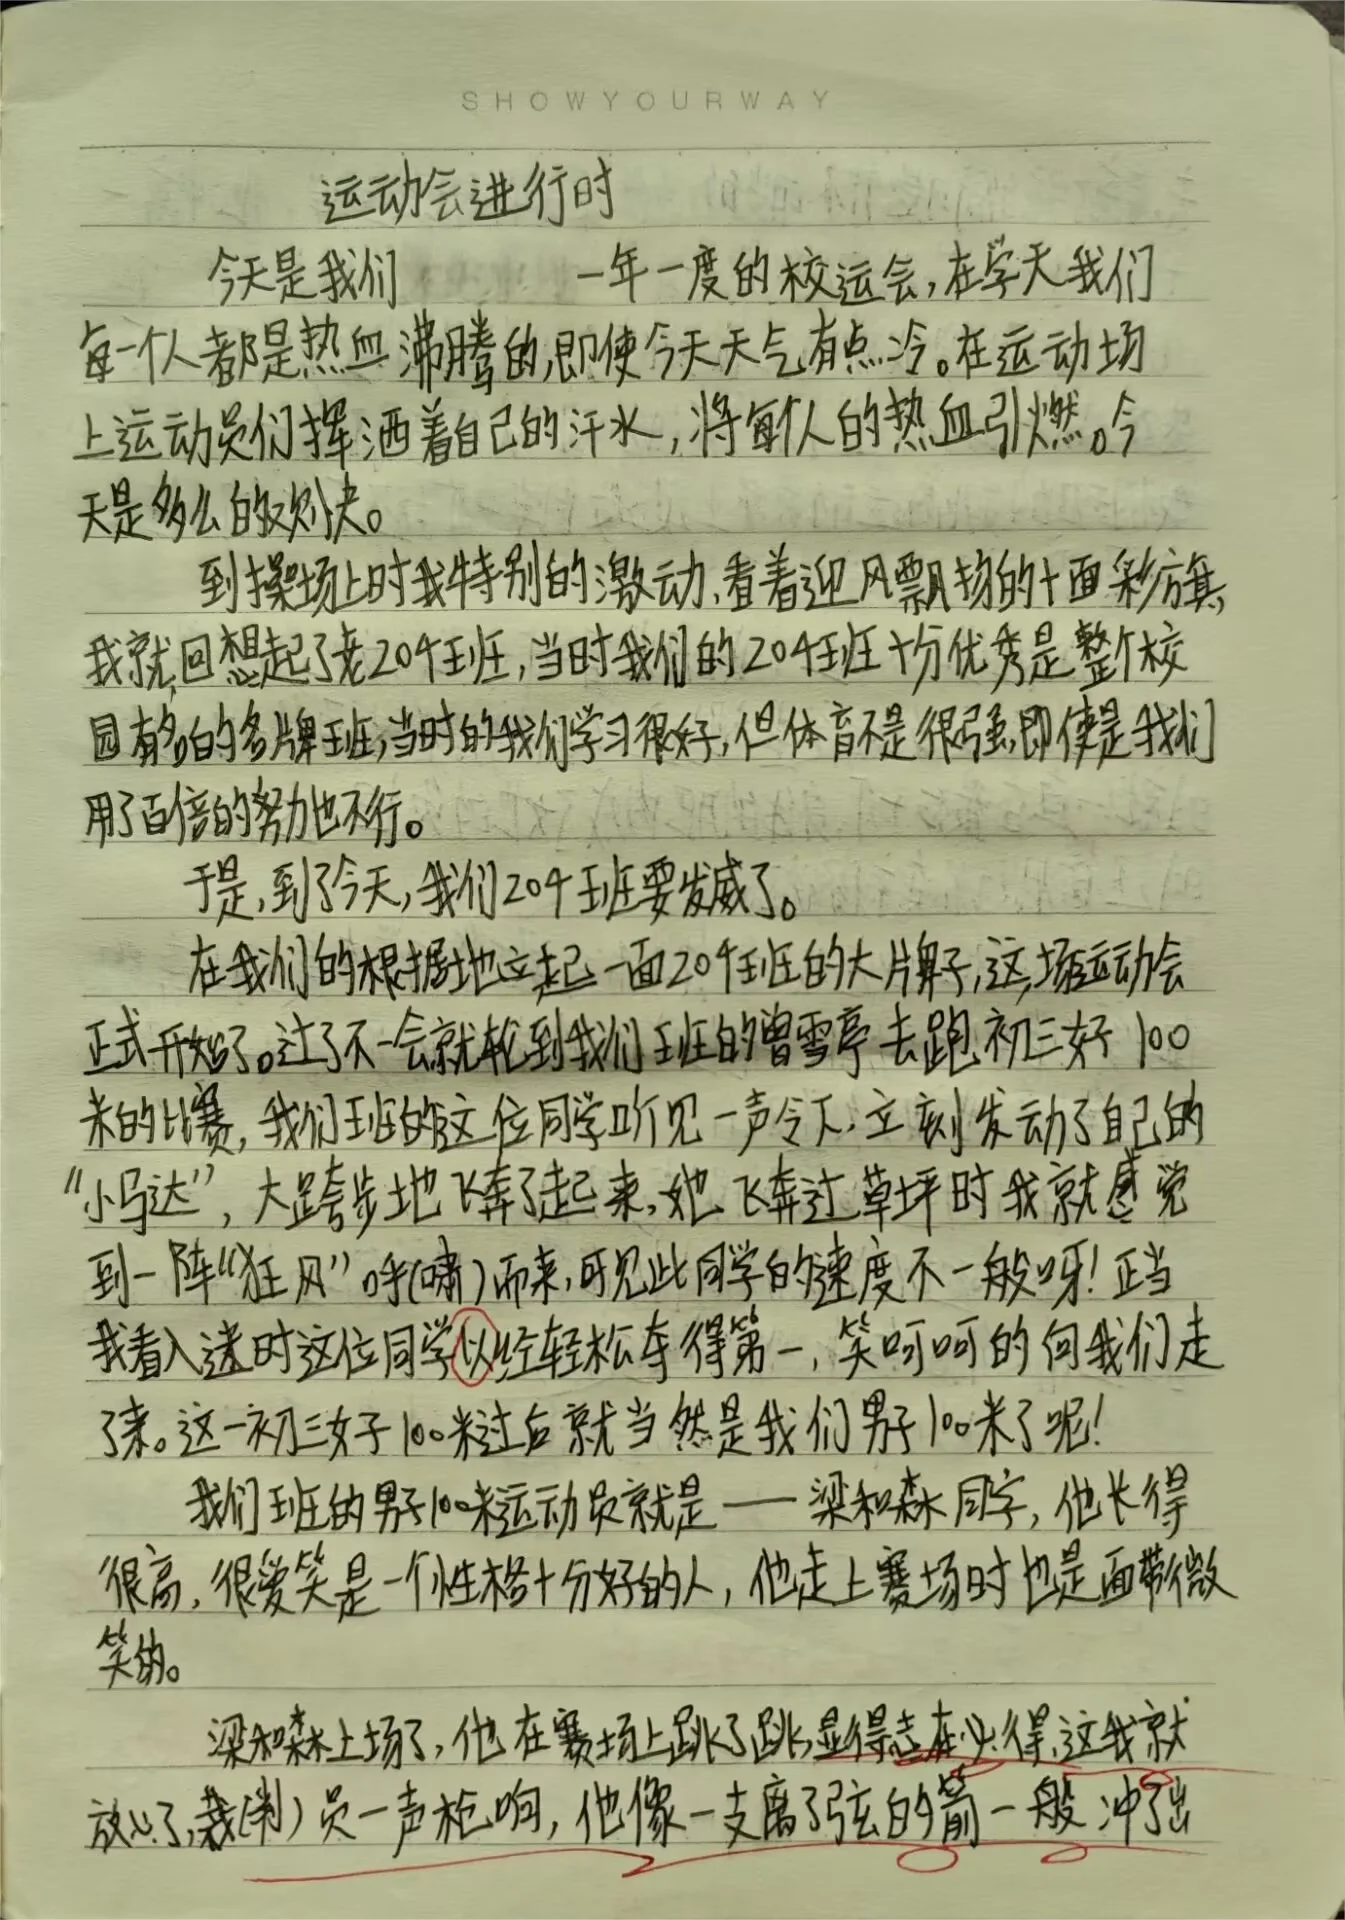 SHOWYOURWAY
运动会进行时
今天是我们 一年一度的校运会,在学天我们
每一个人都是热血沸腾的,即使今天天气有点冷。在运动场
上运动员们挥洒着自己的汗水,将每个人的热血引燃。今
天是多么的欢快。
到操场上时我特别的激动,看着迎风飘扬的十面彩旗,
我就回想起了老204班,当时我们的204班十分优秀是整个校
园有名的名牌班,当时的我们学习很好,但体育不是很强,即使是我们
用了百倍的努力也不行。
于是,到了今天,我们204班要发威了。
在我们的根据地立起一面204班的大牌子,这场运动会
正式开始了。过了不一会就轮到我们班的曾雪亭去跑初三好100
米的比赛,我们班的这位同学听见一声令下,立刻发动了自己的
“小马达”,大跨步地飞奔了起来,她飞奔过草坪时我就感觉
到一阵“狂风”呼(啸)而来,可见此同学的速度不一般呀!正当
我看入迷时这位同学以经轻松夺得第一,笑呵呵的向我们走
了来。这一初三女子100米过后就当然是我们男子100米了呢!
我们班的男子100米运动员就是——梁和森同学,他长得
很高,很爱笑是一个性格十分好的人,他走上赛场时也是面带微
笑的。
梁和森上场了,他在赛场上跳了跳,显得志在必得,这我就
放心了,裁(判)员一声枪响,他像一支离了弦的箭一般冲了出